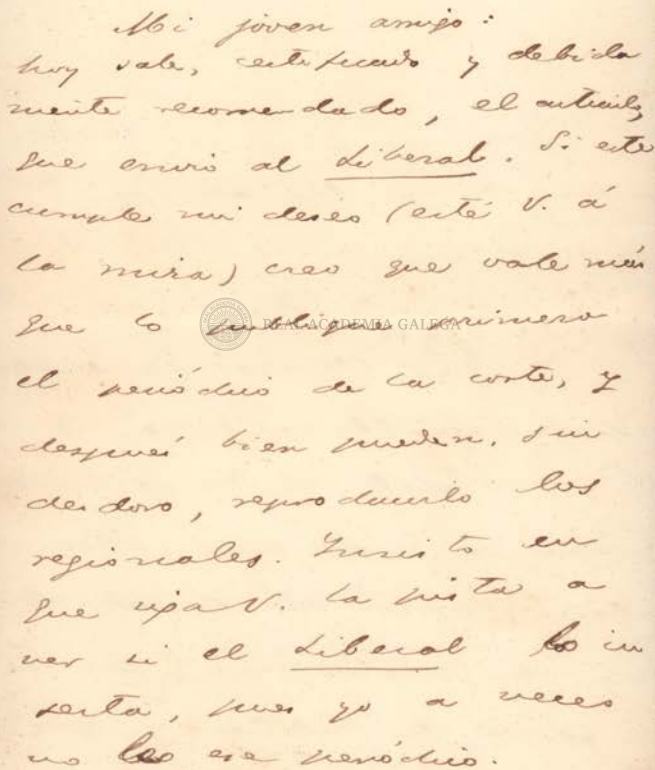 Mi joven amigo:
hoy sale, certificado y debida
mente recomendado, el artículo,
que envío al Liberal. Si este
cumple mi deseo (esté V. á
la mira) creo que vale más
que lo publique primero
REAL ACADEMIA GALEGA
el periódico de la corte, y
después bien pueden, sin
desdoro, reproducirlo los
regionales. Insisto en
que siga V. la pista a
ver si el Liberal lo in
serta, pues yo a veces
no leo ese periódico.